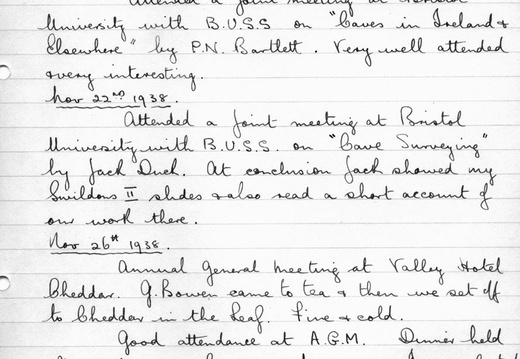 Attended a joint meeting at Bristol
University with B.U.S.S on "Caves in Ireland &
Elsewhere" by P.N. Bartlett. Very well attended
& very interesting.
Nov 22nd 1938.
Attended a joint meeting at Bristol
University with B.U.S.S. on "Cave Surveying"
by Jack Duck. At conclusion Jack showed my
Swildons II slides & also read a short account of
our work there.
Nov 26th 1938.
Annual General Meeting at Valley Hotel
Cheddar. G. Bowen came to tea & then we set off
to Cheddar in the Leaf. Fine & cold.
Good attendance at A.G.M. Dinner held